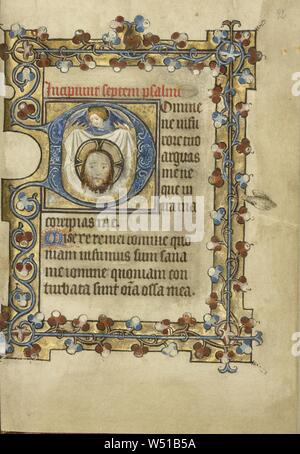 92
Incipiunt septem psalmi
Domine
ne in fu
rore tuo
arguas
me ne
que in
ira tua
corripias me.
Miserere mei domine quo
niam infirmus sum sana
me domine quoniam con
turbata sunt oīa ossa mea.
alamy
W51B5A
www.alamy.com